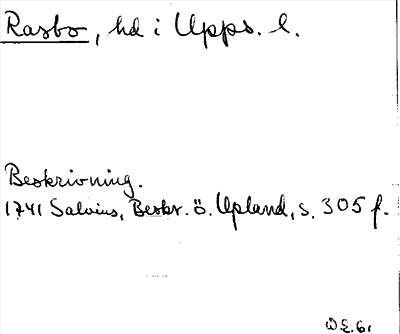 Rasbo, hd i Upps. l.
Beskrivning.
1741 Salvius, Beskr. ö. Upland, s. 305 f.